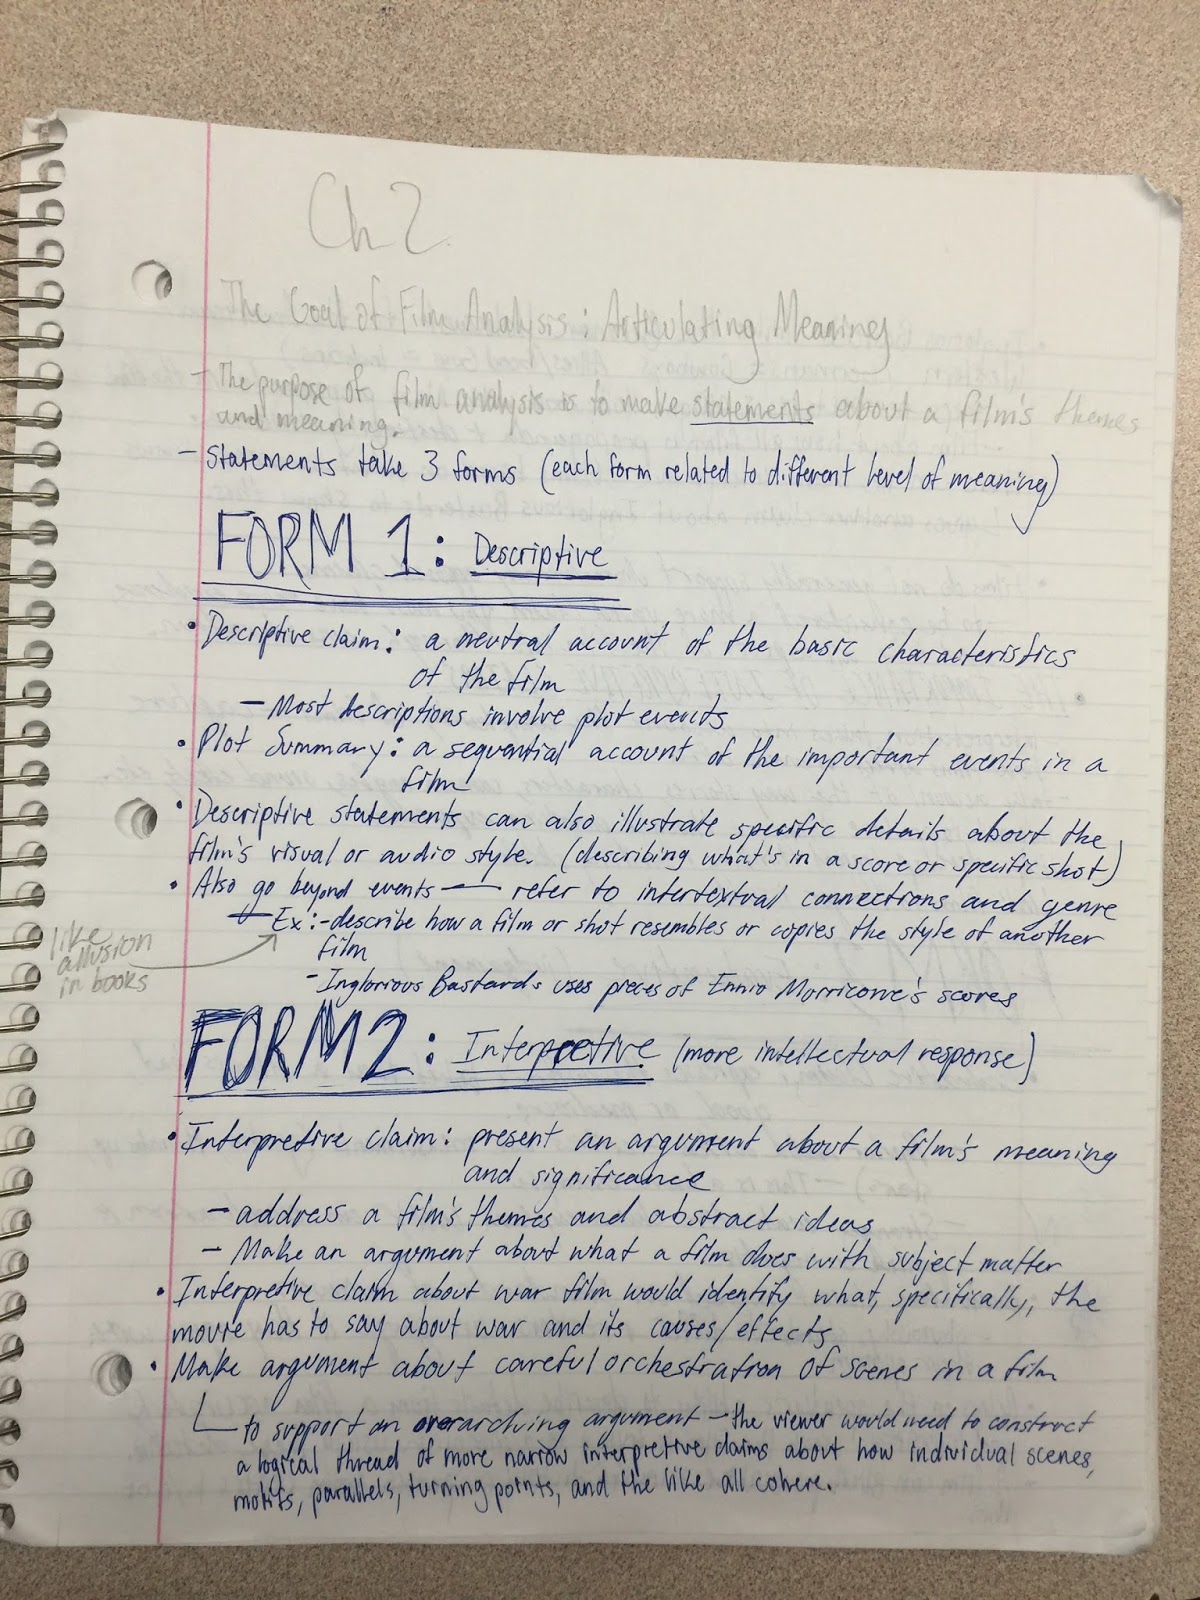 Ch 2
The Goal of Film Analysis: Articulating Meaning
- The purpose of film analysis is to make statements about a film's themes
and meaning.
- Statements take 3 forms (each form related to different level of meaning)
FORM 1: Descriptive
• Descriptive claim: a neutral account of the basic characteristics
of the film
- Most descriptions involve plot events
• Plot Summary: a sequential account of the important events in a
film
• Descriptive statements can also illustrate specific details about the
film's visual or audio style. (describing what's in a score or specific shot)
• Also go beyond events — refer to intertextual connections and genre
- Ex: - describe how a film or shot resembles or copies the style of another
film
like
allusion
in books
- Inglorious Bastards uses pieces of Ennio Morricone's scores
FORM 2: Interpretive (more intellectual response)
• Interpretive claim: present an argument about a film's meaning
and significance
- address a film's themes and abstract ideas
- Make an argument about what a film does with subject matter
• Interpretive claim about war film would identify what, specifically, the
movie has to say about war and its causes/effects
• Make argument about careful orchestration of scenes in a film
to support an overarching argument - the viewer would need to construct
a logical thread of more narrow interpretive claims about how individual scenes,
motifs, parallels, turning points, and the like all cohere.